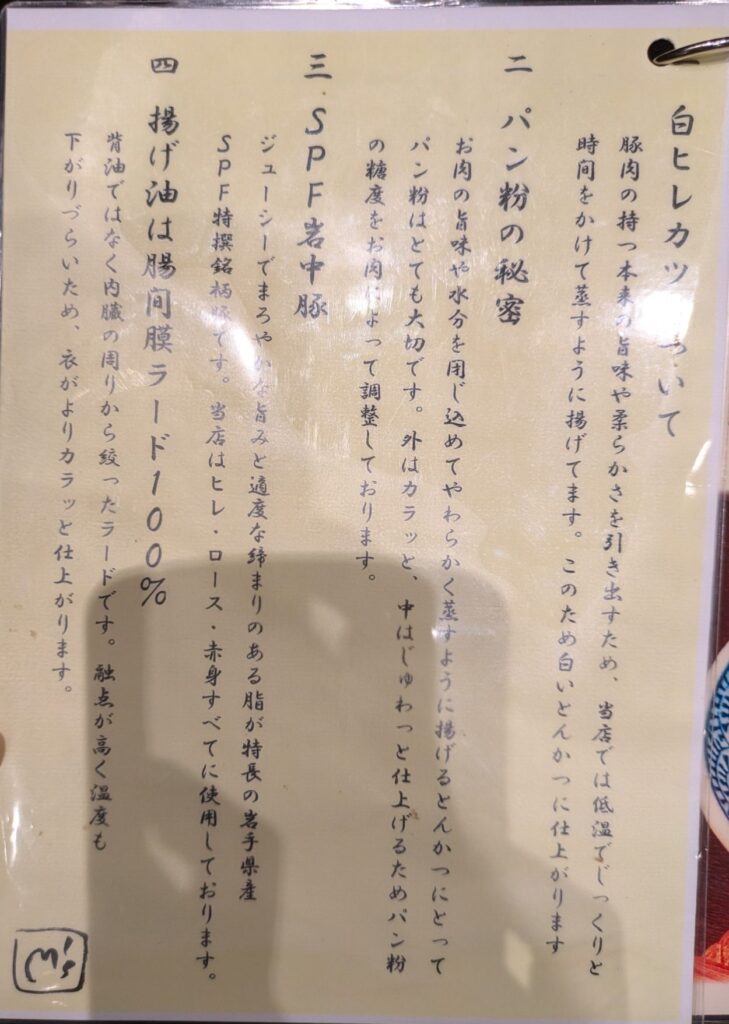 白ヒレカツ ついて
豚肉の持つ本来の旨味や柔らかさを引き出すため、当店では低温でじっくりと
時間をかけて蒸すように揚げてます。このため白いとんかつに仕上がります
二 パン粉の秘密
お肉の旨味や水分を閉じ込めてやわらかく蒸すように揚げるとんかつにとって
パン粉はとても大切です。外はカラッと、中はじゅわっと仕上げるためパン粉
の糖度をお肉によって調整しております。
三 SPF岩中豚
ジューシーでまろやかな旨みと適度な締まりのある脂が特長の岩手県産
SPF特撰銘柄豚です。当店はヒレ・ロース・赤身すべてに使用しております。
四 揚げ油は腸間膜ラード100%
背油ではなく内臓の周りから絞ったラードです。融点が高く温度も
下がりづらいため、衣がよりカラッと仕上がります。
M's